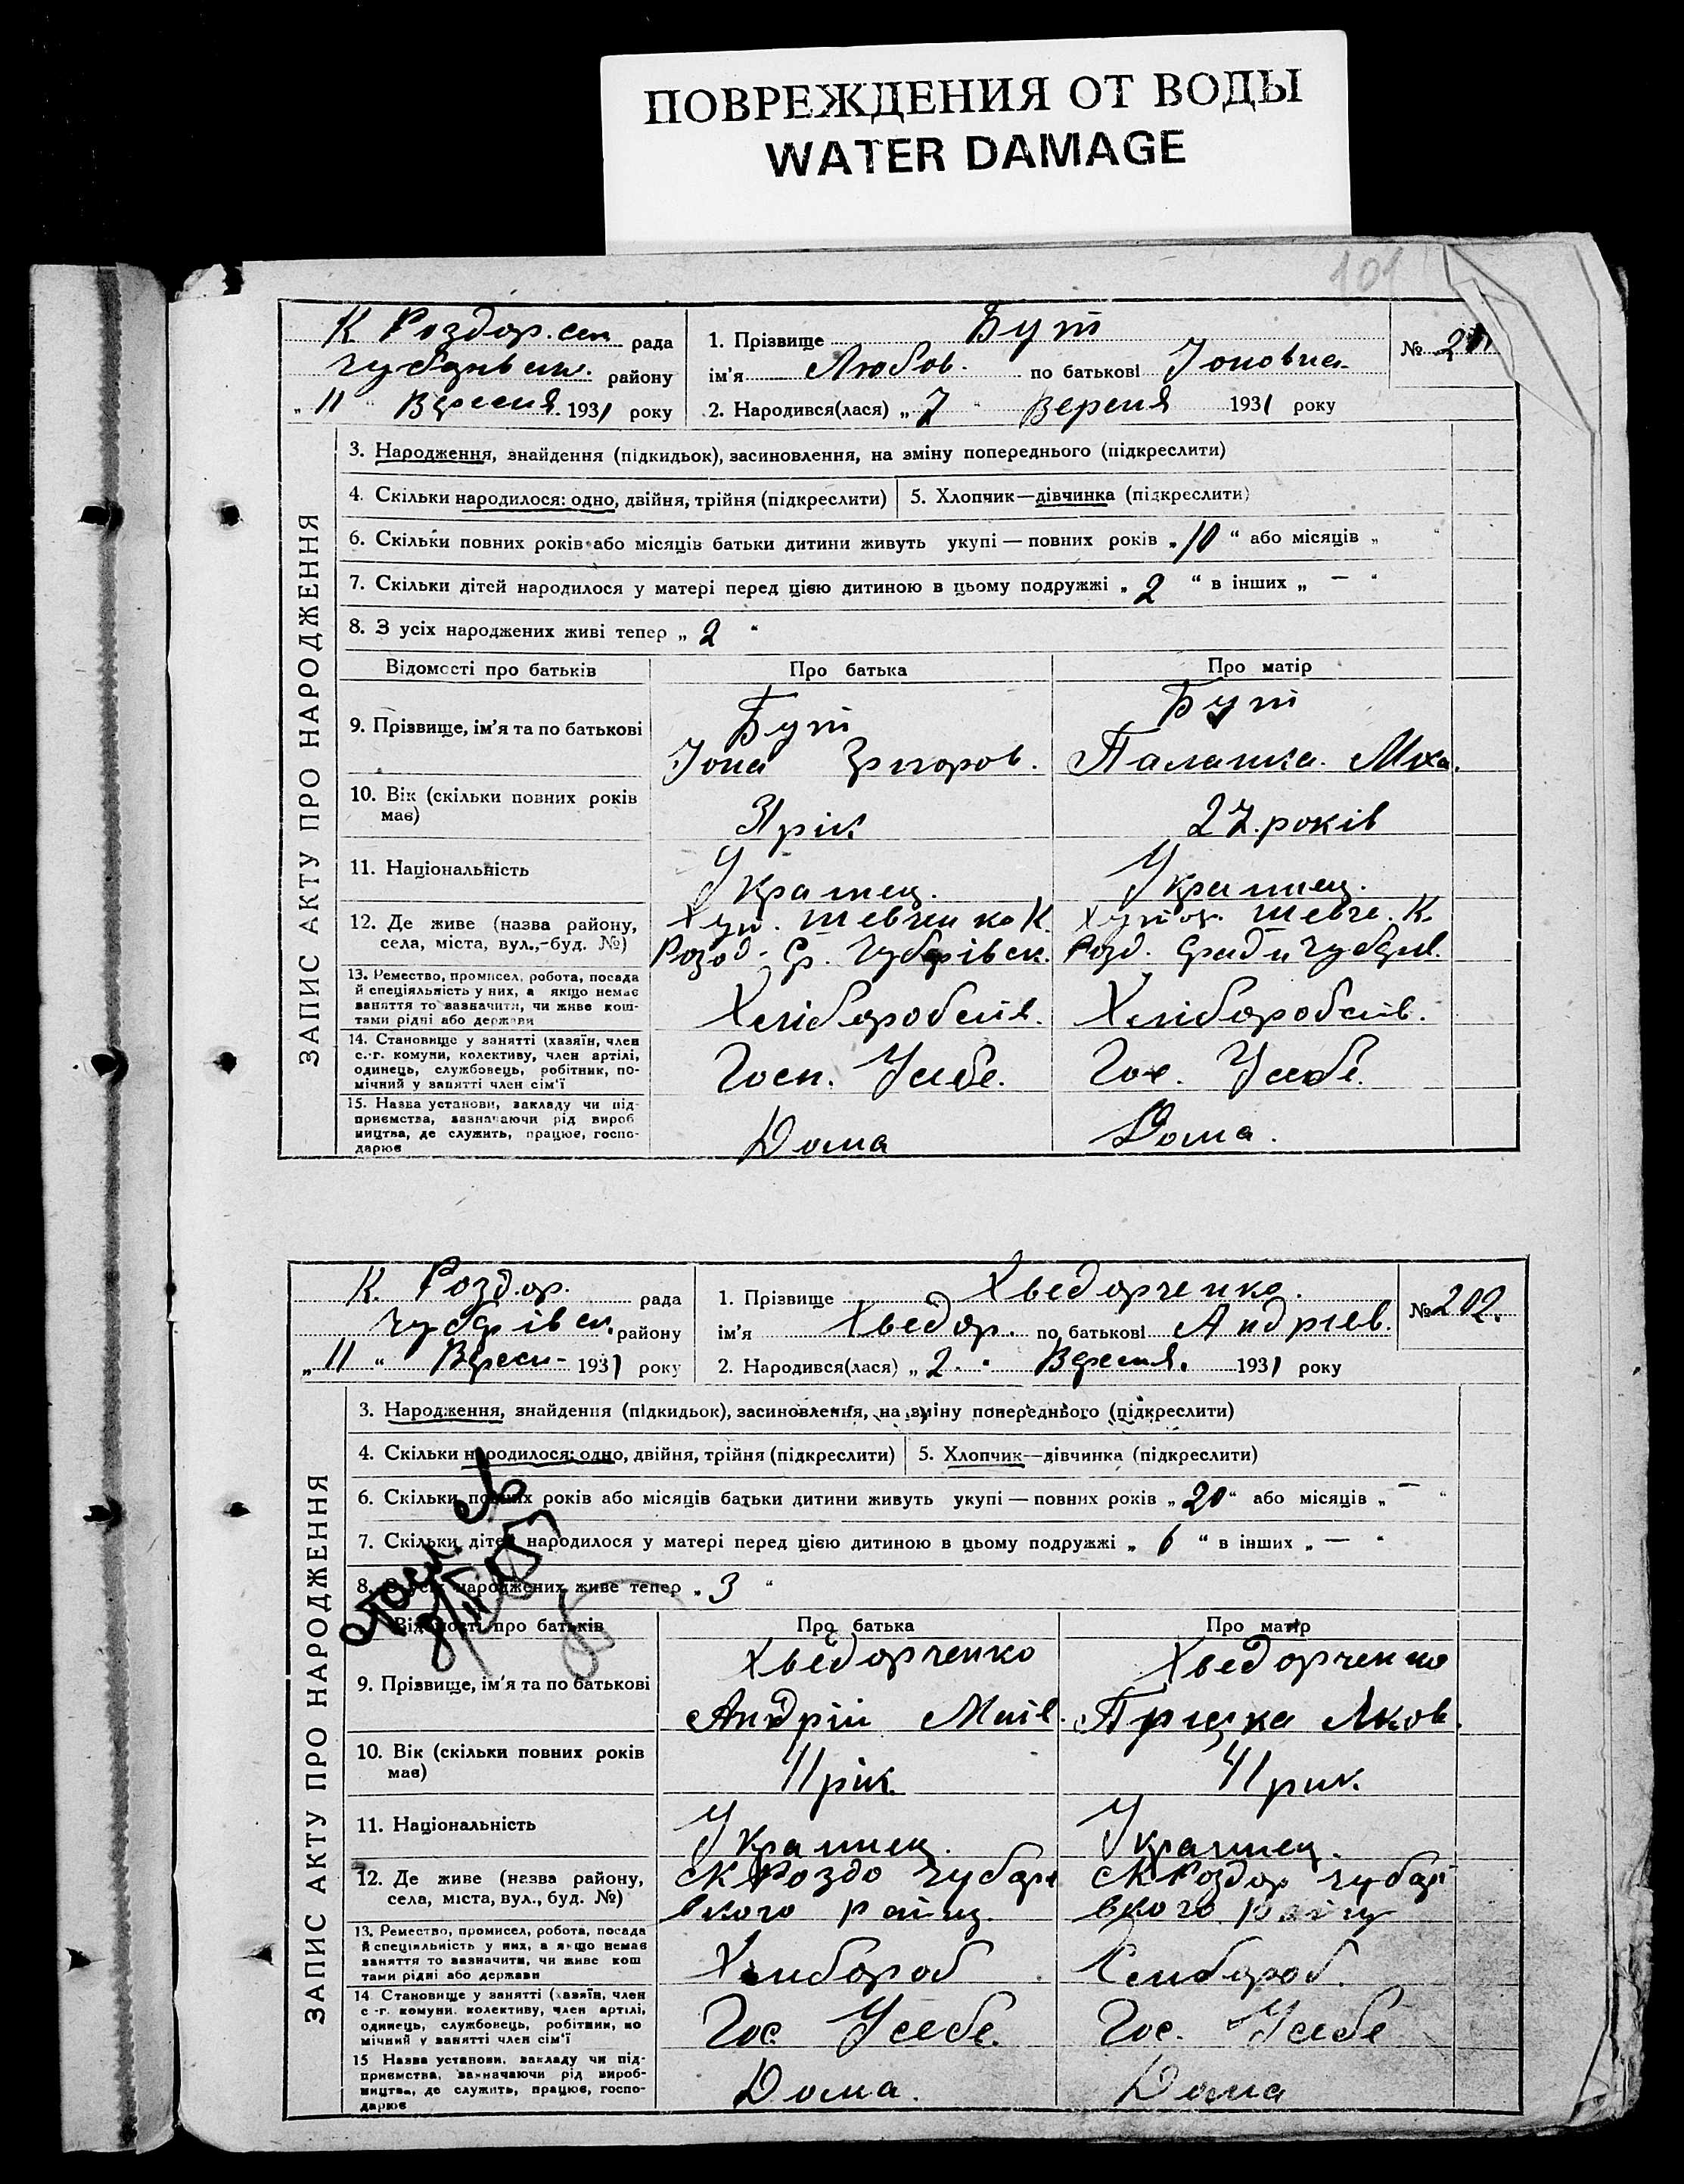 ПОВРЕЖДЕНИЯ ОТ ВОДЫ
WATER DAMAGE
101
К Роздор. сел рада
Чубарівськ. району
„ 11 “ Вересня 1931 року
1. Прізвище Бут
ім'я Любов. по батькові Іоновна
№ 201
2. Народився(лася) „ 7 “ Вереня 1931 року
ЗАПИС АКТУ ПРО НАРОДЖЕННЯ
3. Народження, знайдення (підкидьок), засиновлення, на зміну попереднього (підкреслити)
4. Скільки народилося: одно, двійня, трійня (підкреслити) 5. Хлопчик—дівчинка (підкреслити)
6. Скільки повних років або місяців батьки дитини живуть укупі — повних років „ 10 “ або місяців „ “
7. Скільки дітей народилося у матері перед цією дитиною в цьому подружжі „ 2 “ в інших „ — “
8. З усіх народжених живі тепер „ 2 “
Відомості про батьків Про батька Про матір
9. Прізвище, ім'я та по батькові
Бут
Іона Григоров.
Бут
Палашка. Миха.
10. Вік (скільки повних років має)
31 рік
27. років
11. Національність
Украинец.
Украинец.
12. Де живе (назва району, села, міста, вул.,-буд. №)
Хут. Шевченко К.
Розд. Ср. Чубарівск.
Хутор. Шевче. К.
Розд. Сради Чубарів.
13. Ремество, промисел, робота, посада й спеціяльність у них, а якщо немає заняття то зазначити, чи живе коштами рідні або держави
Хліборобств.
Хліборобств.
14. Становище у занятті (хазяїн, член с.-г. комуни, колективу, член артілі, одинець, службовець, робітник, помічний у занятті член сім'ї
Госп. У себе.
Гос. У себе.
15. Назва установи, закладу чи підприємства, зазначаючи рід виробництва, де служить, працює, господарює
Дома
Дома.
К. Роздор. рада
Чубарівск. району
„ 11 “ Вересн- 1931 року
1. Прізвище Хведорченко.
ім'я Хведор. по батькові Андріев.
№ 202.
2. Народився(лася) „ 2. “ Вересня. 1931 року
ЗАПИС АКТУ ПРО НАРОДЖЕННЯ
3. Народження, знайдення (підкидьок), засиновлення, на зміну попереднього (підкреслити)
4. Скільки народилося: одно, двійня, трійня (підкреслити) 5. Хлопчик—дівчинка (підкреслити)
6. Скільки повних років або місяців батьки дитини живуть укупі — повних років „ 20 “ або місяців „ — “
7. Скільки дітей народилося у матері перед цією дитиною в цьому подружжі „ 6 “ в інших „ — “
8. З усіх народжених живе тепер „ 3 “
Відомості про батьків Про батька Про матір
9. Прізвище, ім'я та по батькові
Хведорченко
Андрій
Хведорченко
Яков.
10. Вік (скільки повних років має)
41 рік.
41 рик.
11. Національність
Украинец.
Украинец.
12. Де живе (назва району, села, міста, вул., буд. №)
СК Роздо Чубарі
вского району
СК Роздор Чубарі
вского району
13. Ремество, промисел, робота, посада й спеціяльність у них, а якщо немає заняття то зазначити, чи живе кош тами рідні або держави
Хлибороб
Хлибороб.
14 Становище у занятті (хазяїн, член с-г. комуни, колективу, член артілі, одинець, службовець, робітник, по мічний у занятті член сім'ї
Гос У себе.
Гос. У себе
15 Назва установи, закладу чи підприємства, зазначаючи рід виробництва, де служить, працює, господарює
Дома.
Дома